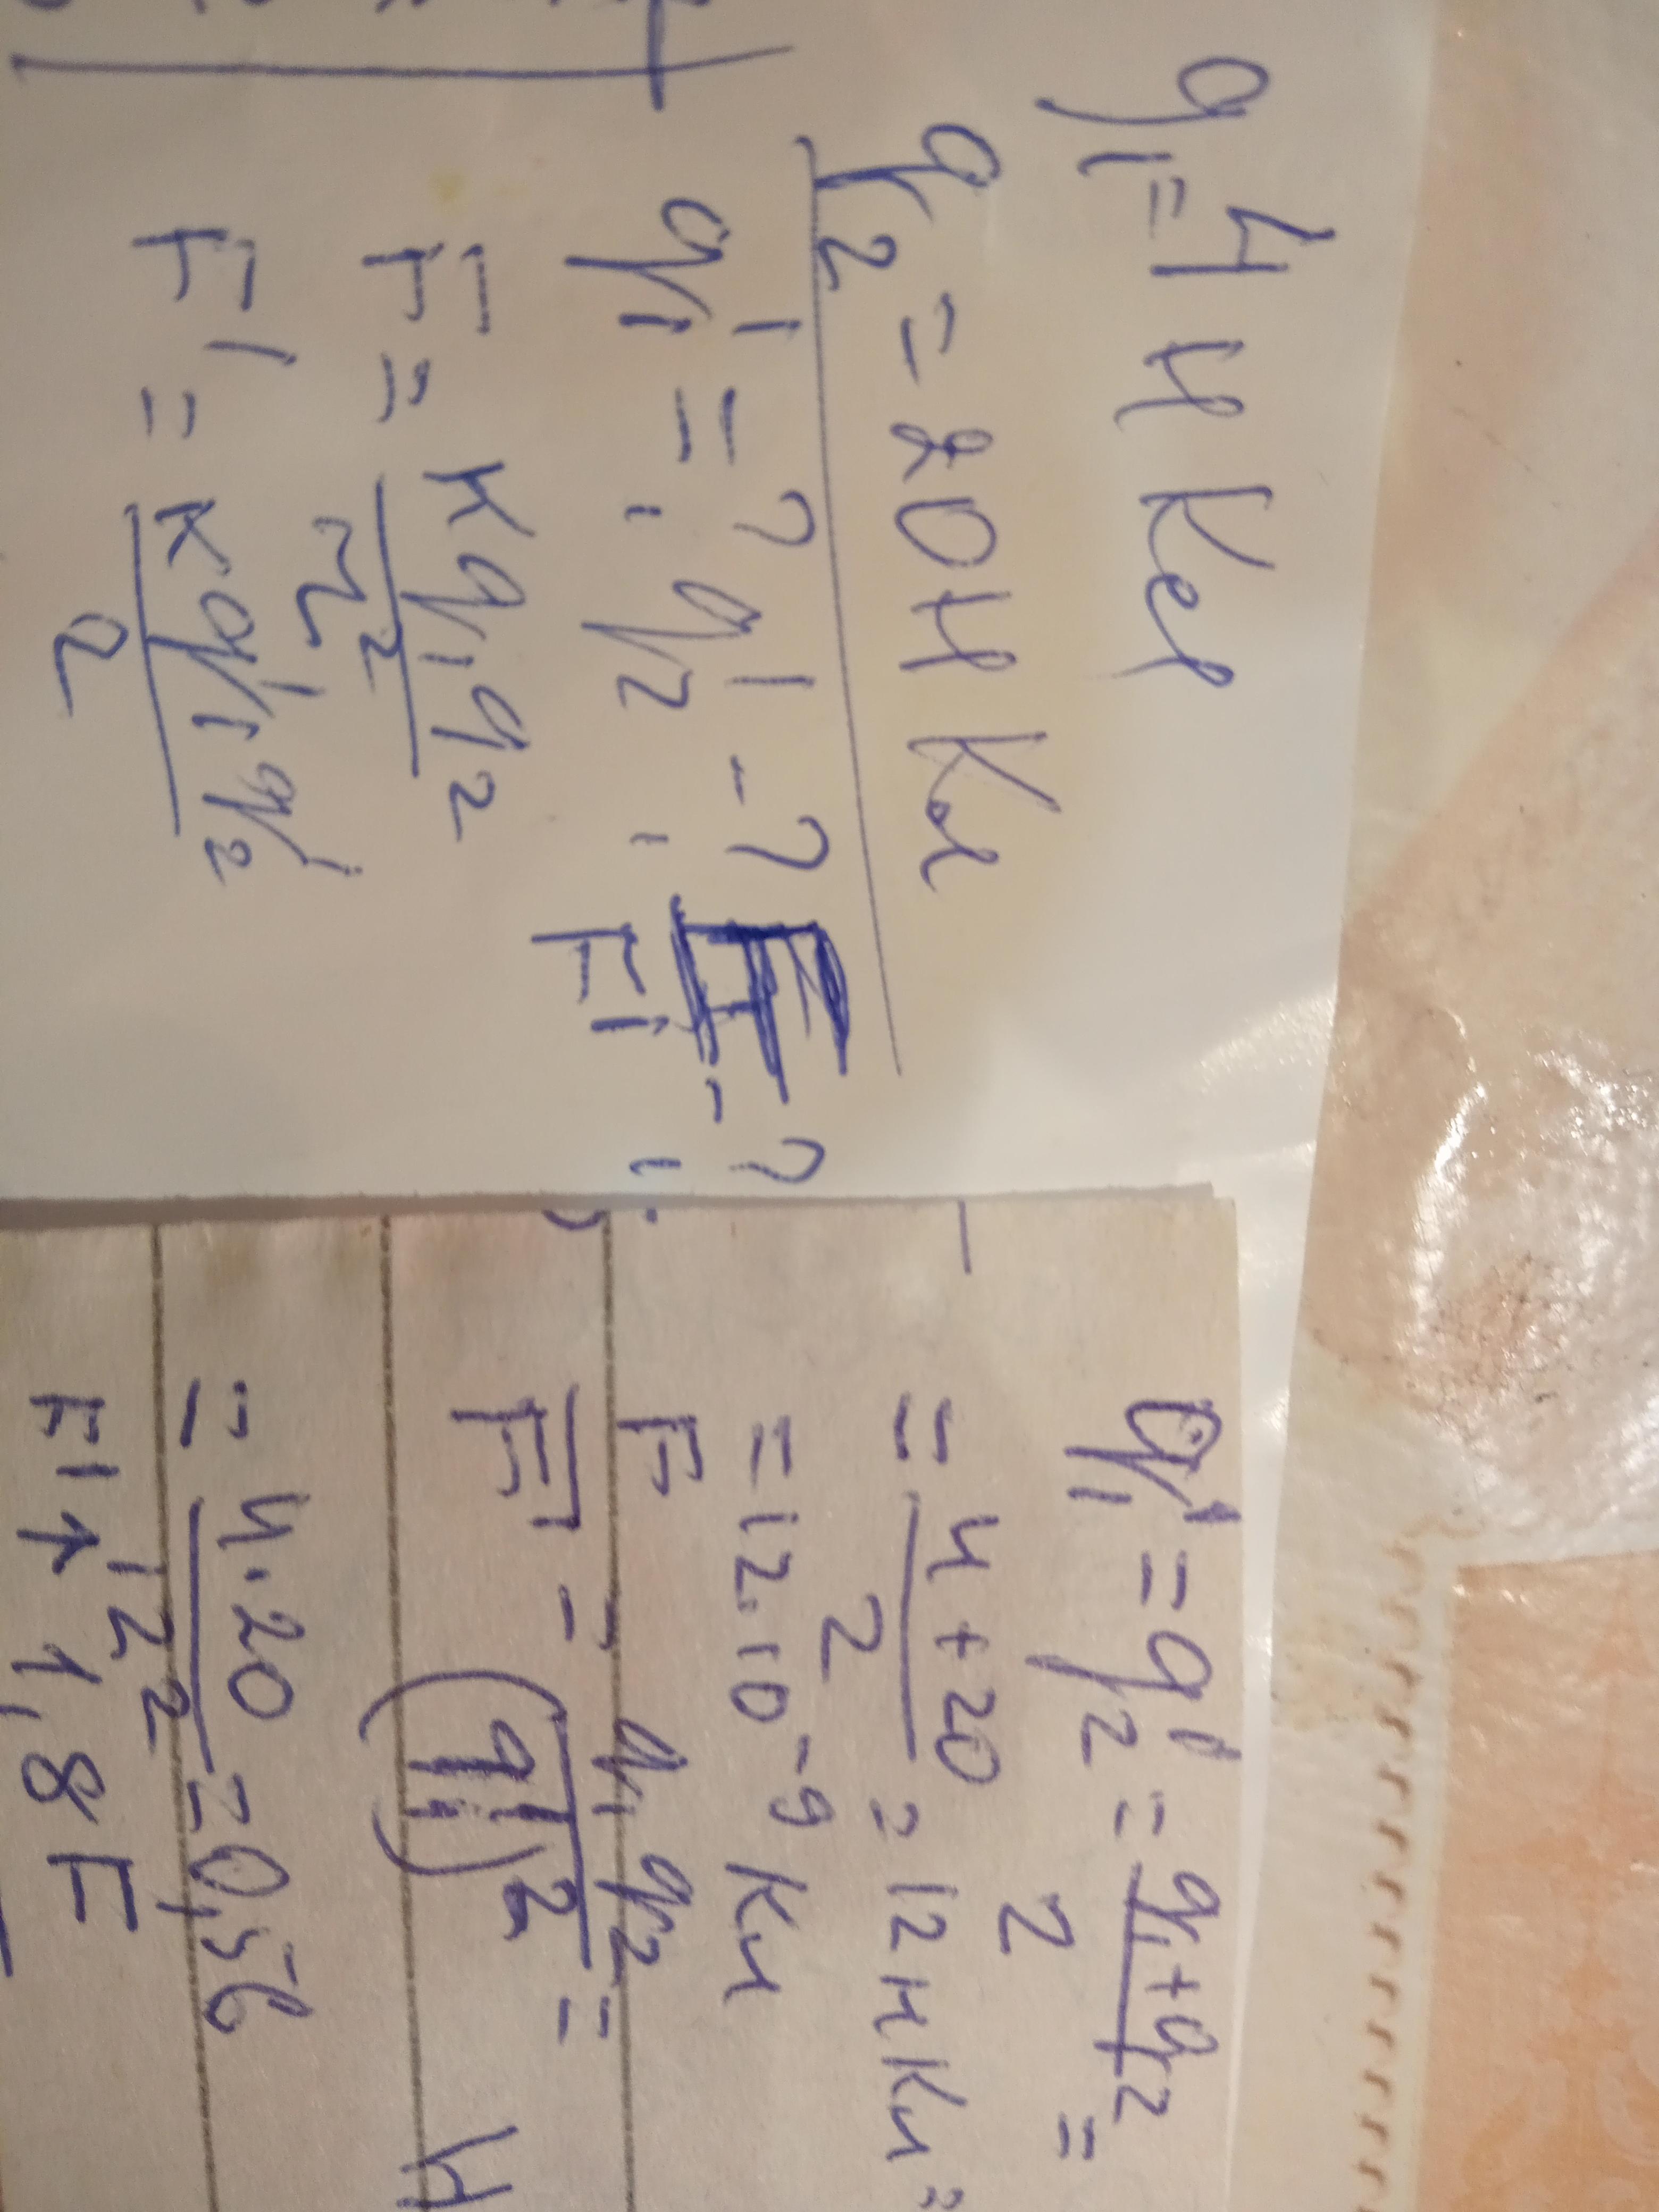 q₁ = 4 н Кл
q₂ = 20 н Кл
q₁' = ? q₂' - ? F' - ?
F = K q₁ q₂ / r²
F' = K q₁' q₂' / 2
q₁' = q₂' = q₁ + q₂ / 2 =
= 4 + 20 / 2 = 12 н Кл =
= 12 · 10⁻⁹ Кл
F / F' = q₁ q₂ / (q₁')² =
= 4 · 20 / 12² = 0,56
F' ↑ 1,8 F